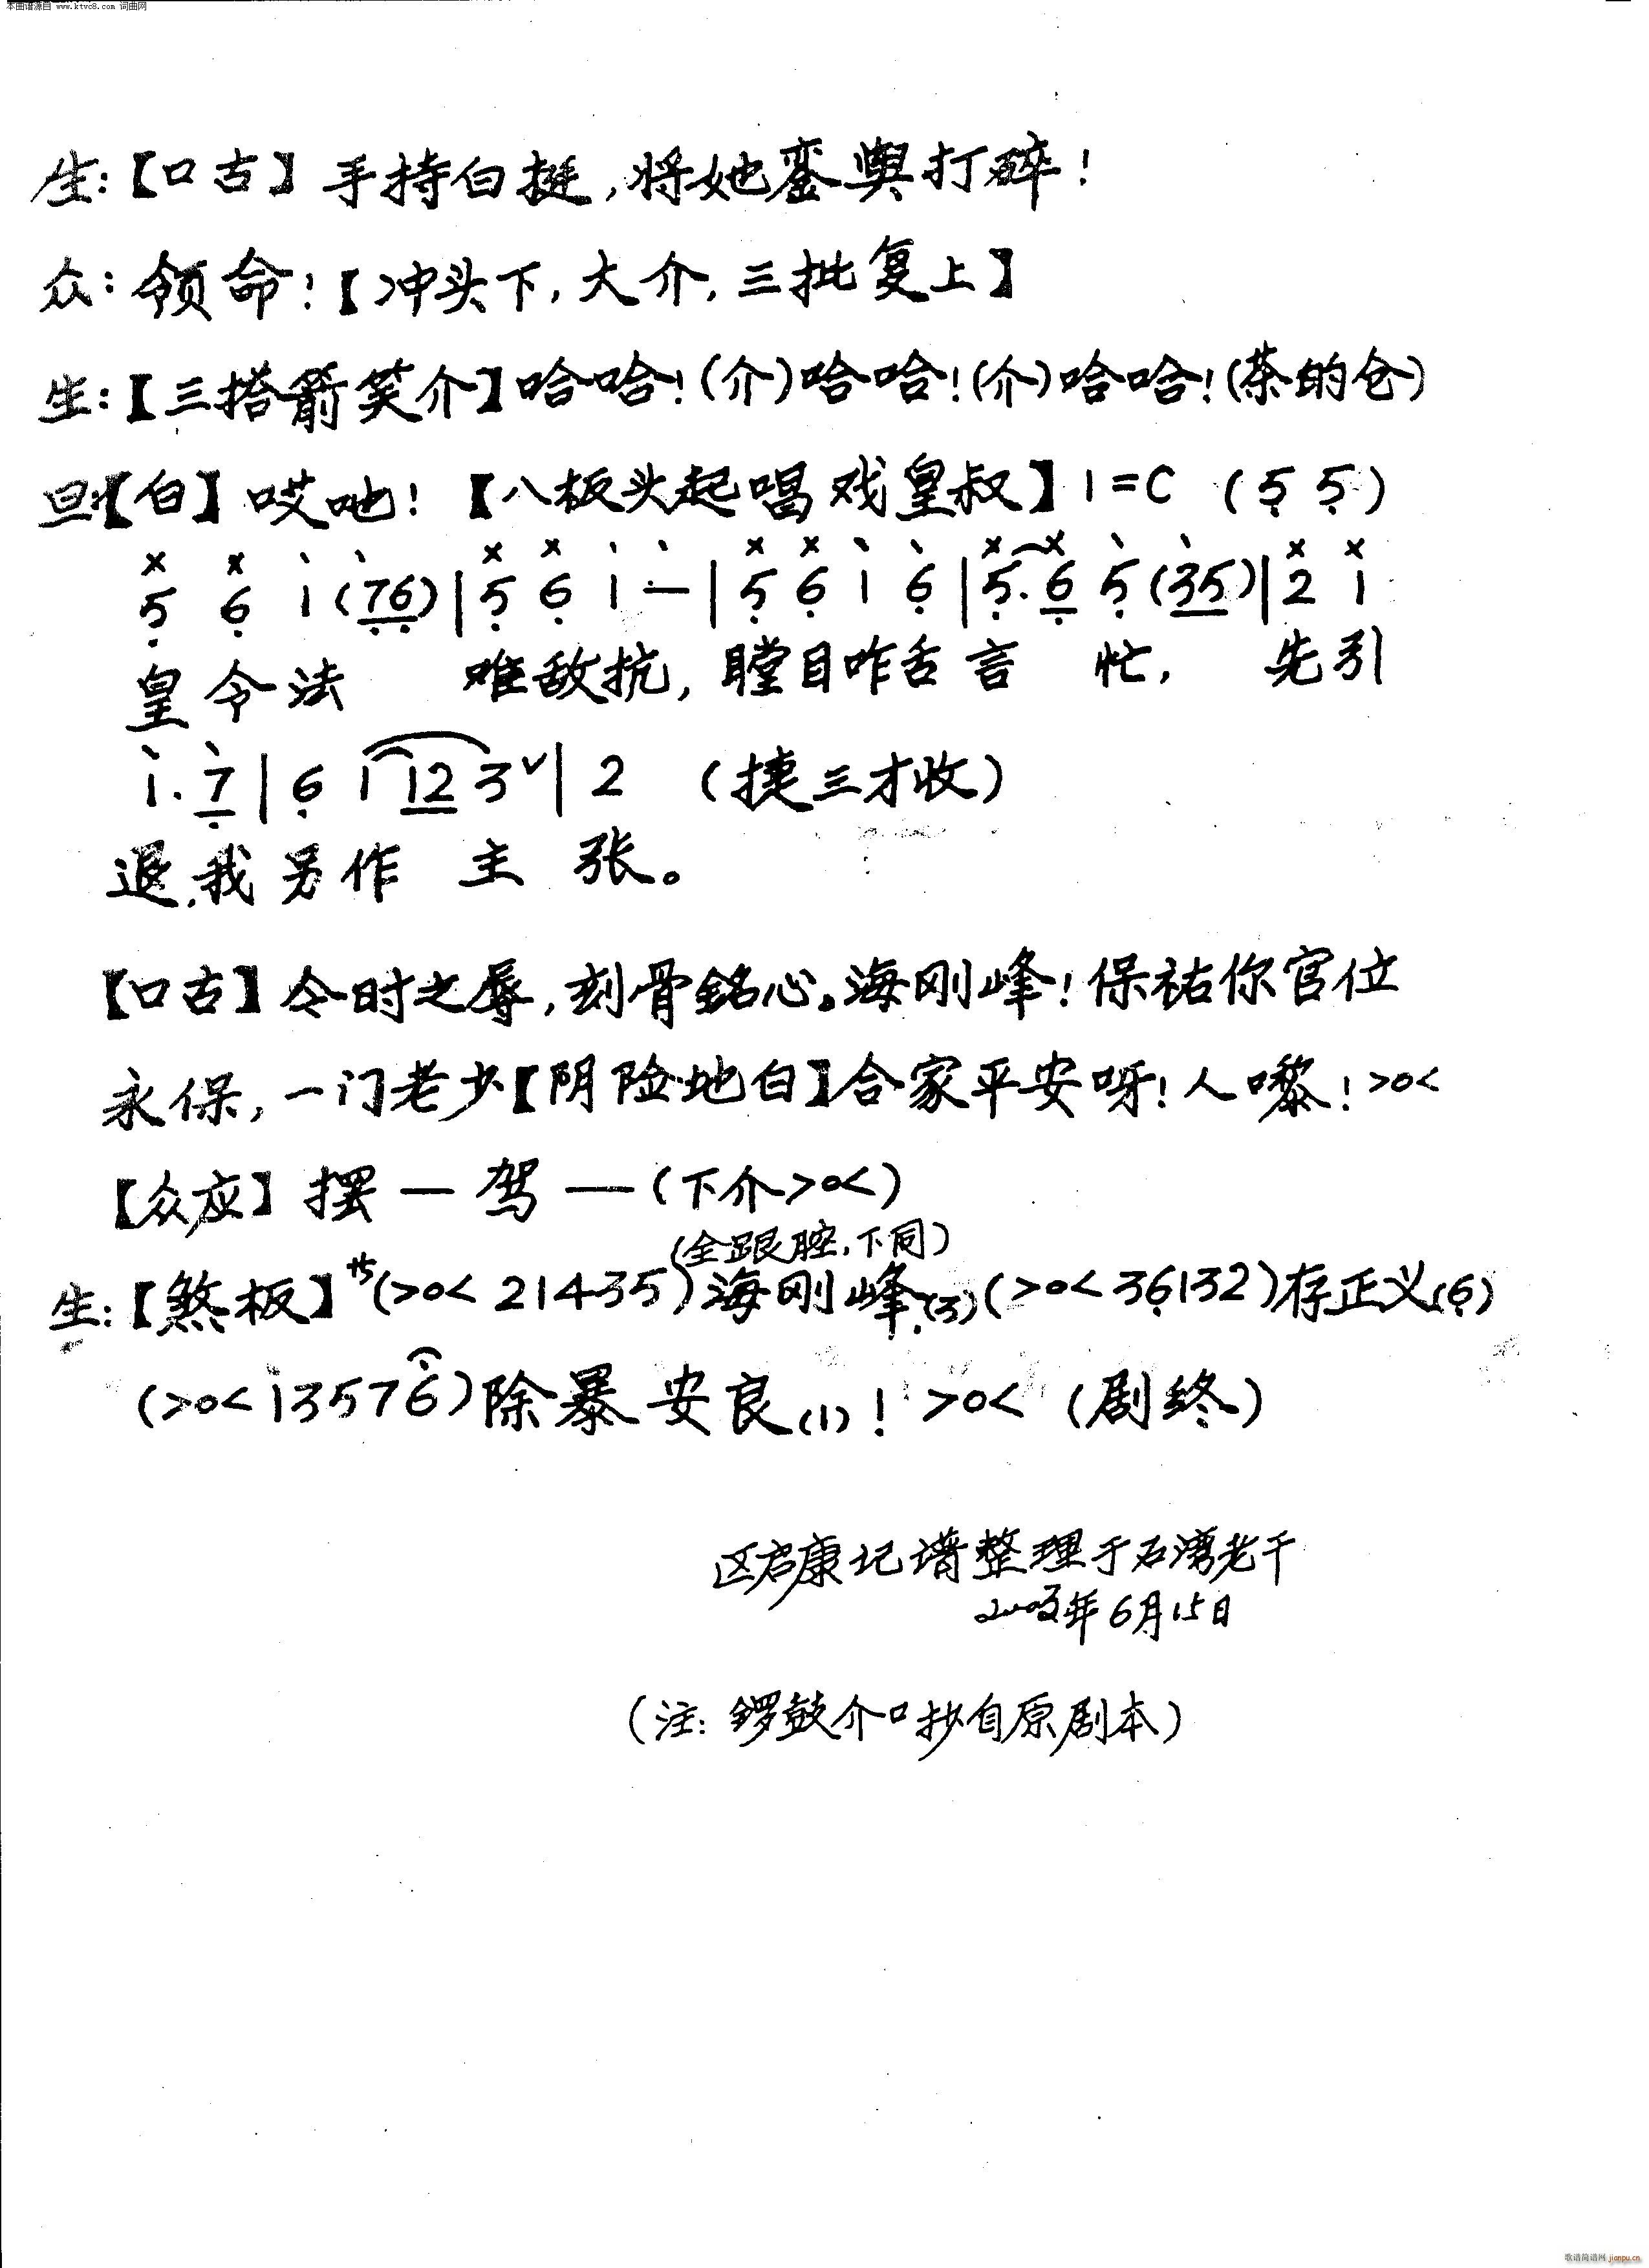 本曲谱源自 www.ktvc8.com 词曲网
生:【口古】手持白挺,将她銮舆打碎!
众:领命!【冲头下,大介,三批复上】
生:【三搭箭笑介】哈哈!(介)哈哈!(介)哈哈!(茶的仓)
旦:【白】哎吔!【八板头起唱戏皇叔】1=C (5̣ 5̣)
× × ヽ ヽ × × ヽ ヽ × × ヽ ヽ × × ヽ ヽ × ×
5̣ 6̣ 1 (7̣6̣) | 5̣ 6̣ 1 — | 5̣ 6̣ 1 6̣ | 5̣. 6̣ 5̣ (35) | 2 1
皇令法 难敌抗,瞠目咋舌言 忙, 先引
ヽ ヽ
1. 7̣ | 6̣ 1 12 3 ˇ | 2 (捷三才收)
退,我另作 主 张。
【口古】今时之辱,刻骨銘心。海刚峰!保祐你官位
永保,一门老少【阴险地白】合家平安呀!人嚟!>o<
【众应】摆—驾—(下介>o<)
(全跟腔,下同)
生:【煞板】サ(>o< 21435)海刚峰.(3)(>o< 36̣132)存正义(6̣)
(>o< i3576)除暴安良(1)!>o< (剧终)
区启康记谱整理于石湾老干
年6月15日
(注:锣鼓介口抄自原剧本)
歌谱简谱网 jianpu.cn